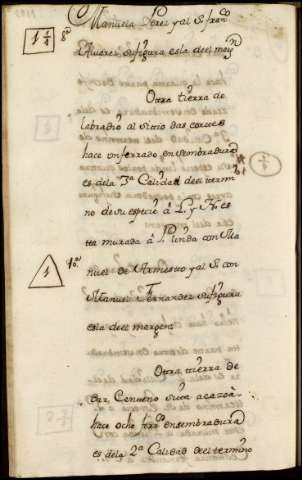 Manuela Perez y al S. fran.co
Alvarez su figura es la del marg.n
1 1/4
8ª
Otra tierra de
labradio al sitio das corvees
hace un ferrado en sembradura
es de la 3ª Calidad del termi
no de su especie á L. y N. es
ta murada á P. linda con Ma
nuel de Armesto y al S. con
Manuel Fernandez su figura
es la del margen
1
10ª
Otra tierra de
dar Centeno
hace ocho fer.os en sembradura
es de la 2ª Calidad del termino